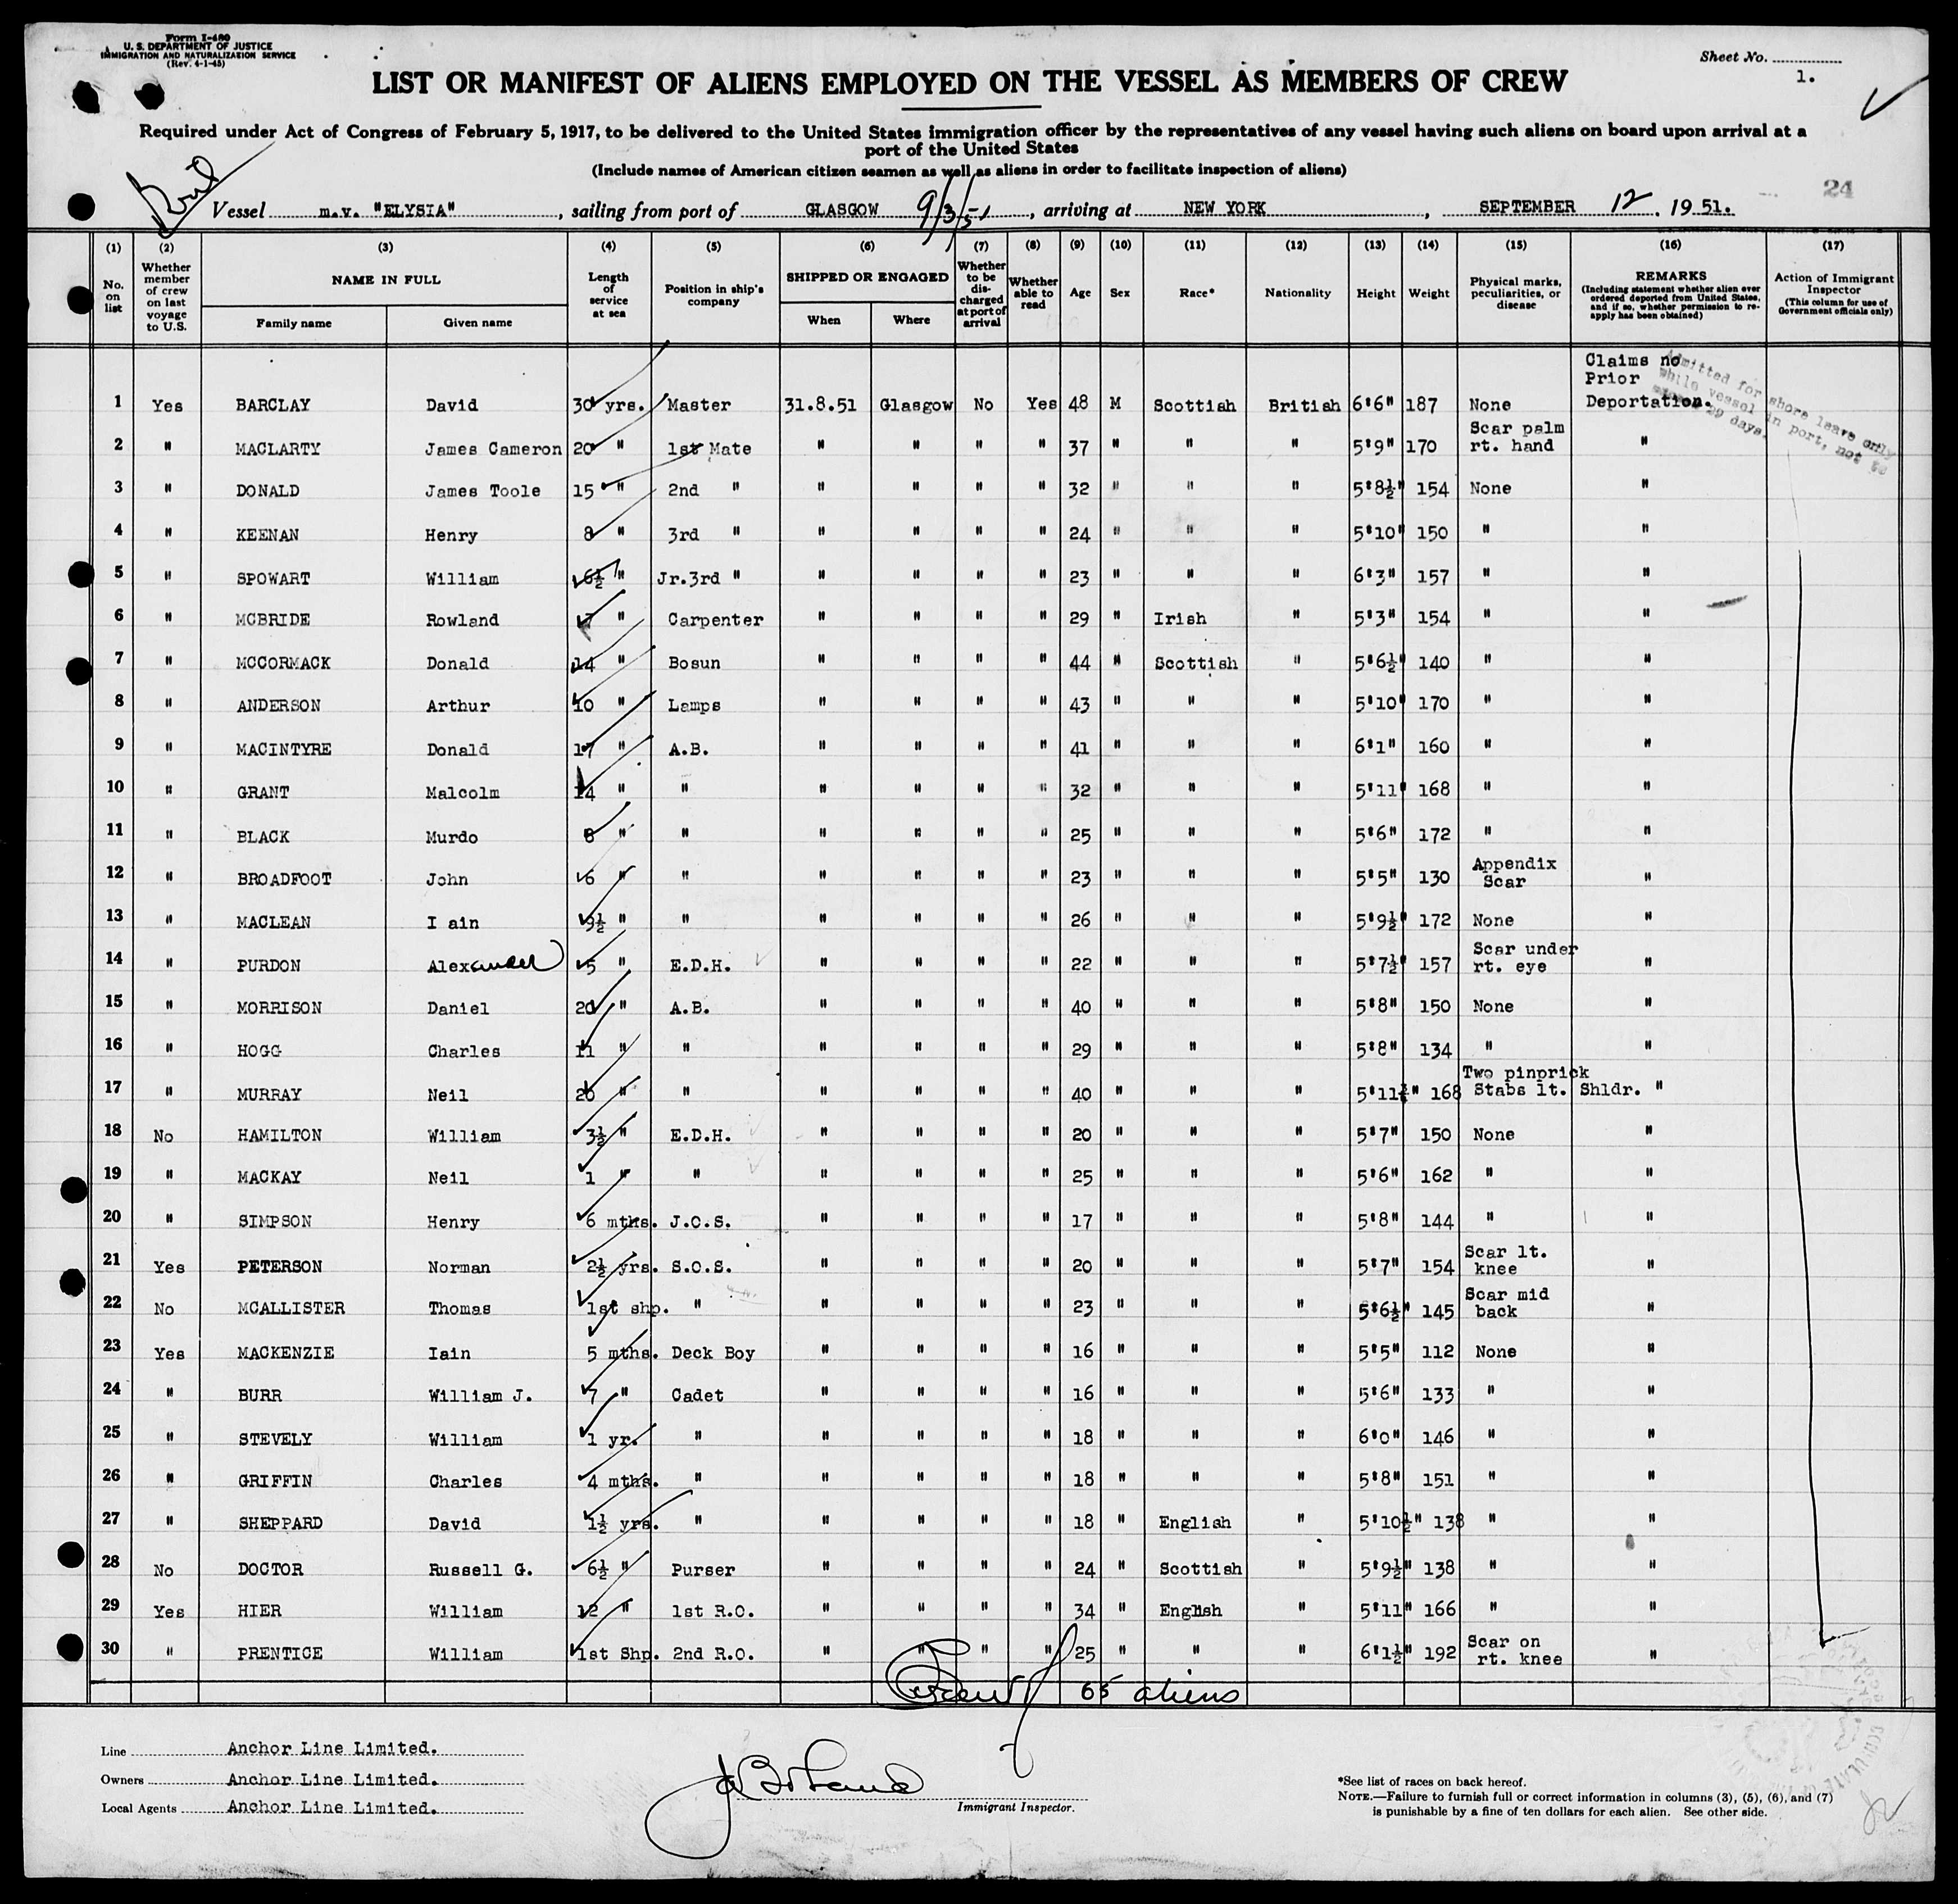 Form I-480
U. S. DEPARTMENT OF JUSTICE
IMMIGRATION AND NATURALIZATION SERVICE
(Rev. 4-1-45)
Sheet No.
1.
LIST OR MANIFEST OF ALIENS EMPLOYED ON THE VESSEL AS MEMBERS OF CREW
Required under Act of Congress of February 5, 1917, to be delivered to the United States immigration officer by the representatives of any vessel having such aliens on board upon arrival at a
port of the United States
(Include names of American citizen seamen as well as aliens in order to facilitate inspection of aliens)
24
Vessel m.v. "ELYSIA", sailing from port of GLASGOW 9/3/51, arriving at NEW YORK, SEPTEMBER 12, 1951.
(1) (2) (3) (4) (5) (6) (7) (8) (9) (10) (11) (12) (13) (14) (15) (16) (17)
No. on list
Whether member of crew on last voyage to U.S.
NAME IN FULL
Family name Given name
Length of service at sea
Position in ship's company
SHIPPED OR ENGAGED
When Where
Whether to be discharged at port of arrival
Whether able to read
Age Sex Race* Nationality Height Weight
Physical marks, peculiarities, or disease
REMARKS
(Including statement whether alien ever ordered deported from United States, and if so, whether permission to re-apply has been obtained)
Action of Immigrant Inspector
(This column for use of Government officials only)
Admitted for shore leave only
while vessel in port, not to
29 days.
1 Yes BARCLAY David 30 yrs. Master 31.8.51 Glasgow No Yes 48 M Scottish British 6'6" 187 None Claims no Prior Deportation.
2 " MACLARTY James Cameron 20 " 1st Mate " " " " 37 " " " 5'9" 170 Scar palm rt. hand "
3 " DONALD James Toole 15 " 2nd " " " " " 32 " " " 5'8½" 154 None "
4 " KEENAN Henry 8 " 3rd " " " " " 24 " " " 5'10" 150 " "
5 " SPOWART William 6½ " Jr.3rd " " " " " 23 " " " 6'3" 157 " "
6 " MCBRIDE Rowland 7 " Carpenter " " " " 29 " Irish " 5'3" 154 " "
7 " MCCORMACK Donald 14 " Bosun " " " " 44 " Scottish " 5'6½" 140 " "
8 " ANDERSON Arthur 10 " Lamps " " " " 43 " " " 5'10" 170 " "
9 " MACINTYRE Donald 17 " A.B. " " " " 41 " " " 6'1" 160 " "
10 " GRANT Malcolm 14 " " " " " " 32 " " " 5'11" 168 " "
11 " BLACK Murdo 8 " " " " " " 25 " " " 5'6" 172 " "
12 " BROADFOOT John 6 " " " " " " 23 " " " 5'5" 130 Appendix Scar "
13 " MACLEAN I ain 9½ " " " " " " 26 " " " 5'9½" 172 None "
14 " PURDON Alexander 5 " E.D.H. " " " " 22 " " " 5'7½" 157 Scar under rt. eye "
15 " MORRISON Daniel 20 " A.B. " " " " 40 " " " 5'8" 150 None "
16 " HOGG Charles 11 " " " " " " 29 " " " 5'8" 134 " "
17 " MURRAY Neil 20 " " " " " " 40 " " " 5'11½" 168 Two pinprick Stabs lt. Shldr. "
18 No HAMILTON William 3½ " E.D.H. " " " " 20 " " " 5'7" 150 None "
19 " MACKAY Neil 1 " " " " " " 25 " " " 5'6" 162 " "
20 " SIMPSON Henry 6 mths. J.O.S. " " " " 17 " " " 5'8" 144 " "
21 Yes PETERSON Norman 2½ yrs. S.O.S. " " " " 20 " " " 5'7" 154 Scar lt. knee "
22 No MCALLISTER Thomas 1st shp. " " " " " 23 " " " 5'6½" 145 Scar mid back "
23 Yes MACKENZIE Iain 5 mths. Deck Boy " " " " 16 " " " 5'5" 112 None "
24 " BURR William J. 7 " Cadet " " " " 16 " " " 5'6" 133 " "
25 " STEVELY William 1 yr. " " " " " 18 " " " 6'0" 146 " "
26 " GRIFFIN Charles 4 mths. " " " " " 18 " " " 5'8" 151 " "
27 " SHEPPARD David 1½ yrs. " " " " " 18 " English " 5'10½" 138 " "
28 No DOCTOR Russell G. 6½ " Purser " " " " 24 " Scottish " 5'9½" 138 " "
29 Yes HIER William 12 " 1st R.O. " " " " 34 " English " 5'11" 166 " "
30 " PRENTICE William 1st Shp. 2nd R.O. " " " " 25 " " " 6'1½" 192 Scar on rt. knee "
65 aliens
Line Anchor Line Limited.
Owners Anchor Line Limited.
Local Agents Anchor Line Limited.
Immigrant Inspector.
*See list of races on back hereof.
NOTE.—Failure to furnish full or correct information in columns (3), (5), (6), and (7)
is punishable by a fine of ten dollars for each alien. See other side.